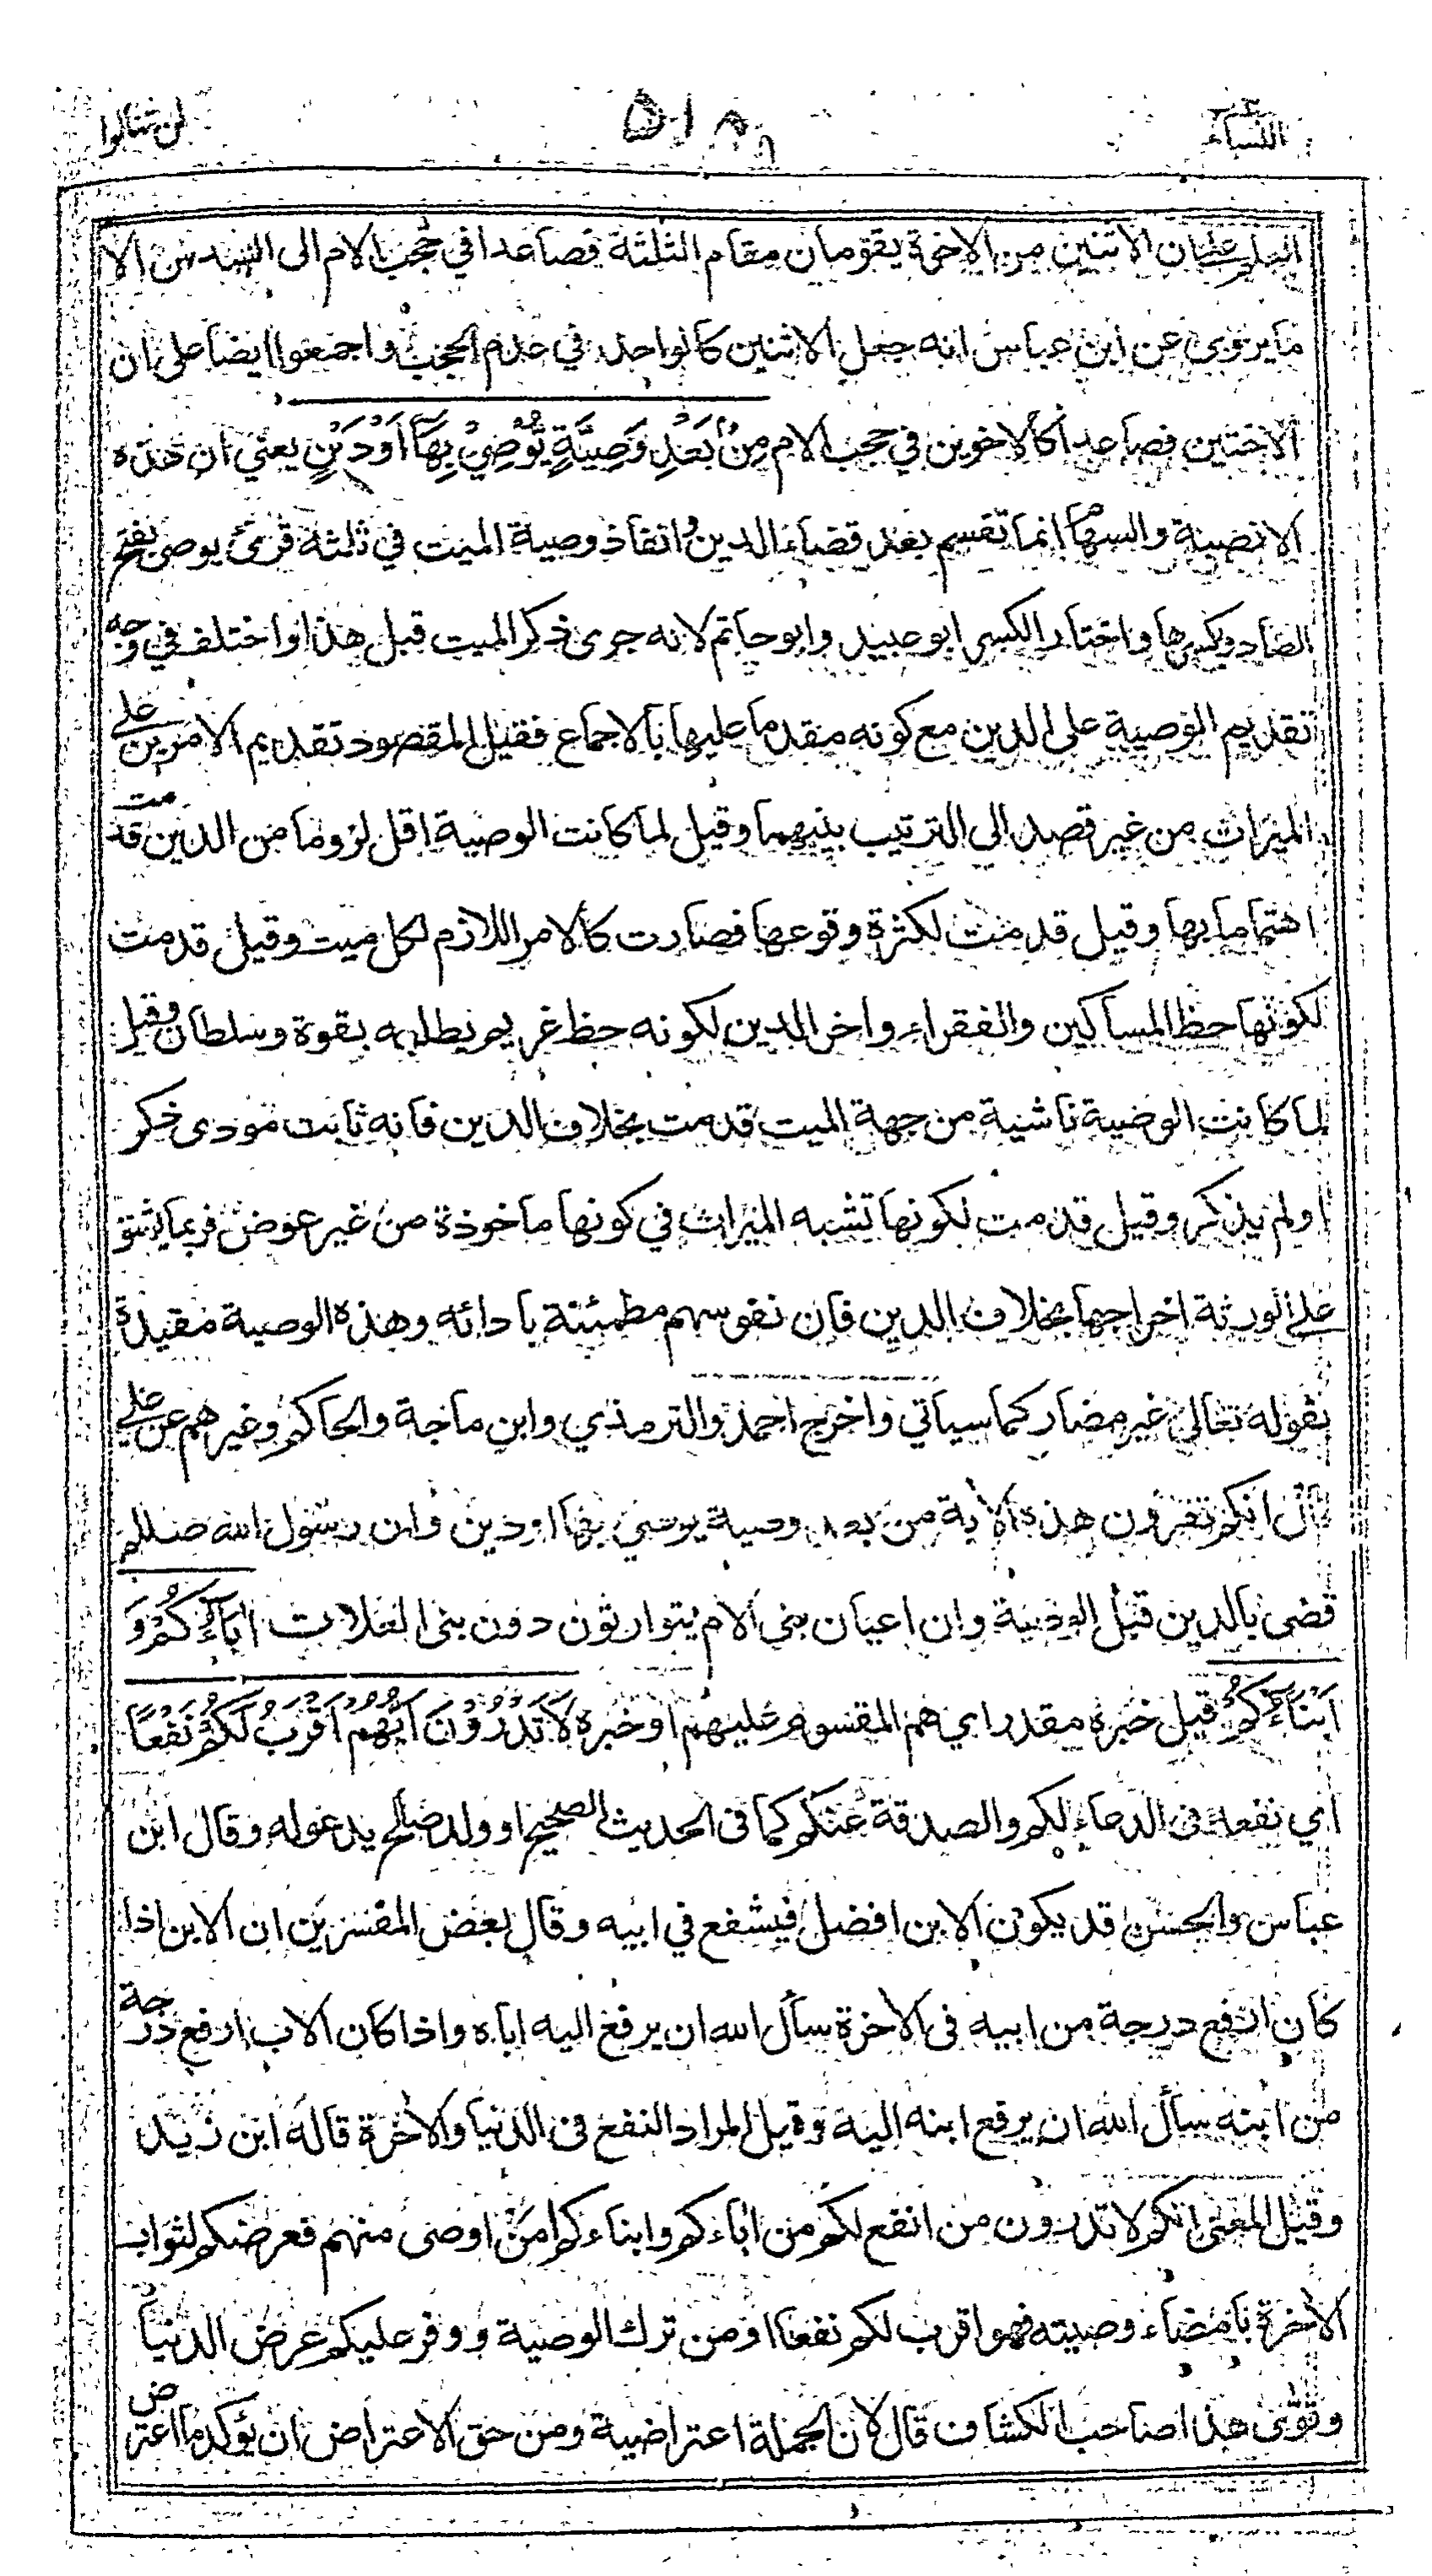 النساء ٤ ٥١٨ لن تنالوا
العلم على ان الاثنين من الاخوة يقومان مقام الثلثة فصاعدا في حجب الام الى السدس الا
ما يروى عن ابن عباس انه جعل الاثنين كالواحد في عدم الحجب واجمعوا ايضا على ان
الاختين فصاعدا كالاخوين في حجب الام مِنْۢ بَعْدِ وَصِيَّةٍ يُّوْصِيْ بِهَآ اَوْ دَيْنٍ يعني ان هذه
الانصبة والسهام انما تقسم بعد قضاء الدين وانفاذ وصية الميت في ثلثة قرئ يوصى بفتح
الصاد وبكسرها واختار الكسر ابو عبيد وابو حاتم لانه جرى ذكر الميت قبل هذا واختلف في وجه
تقديم الوصية على الدين مع كونه مقدما عليها بالاجماع فقيل المقصود تقديم الامرين على
الميراث من غير قصد الى الترتيب بينهما وقيل لما كانت الوصية اقل لزوما من الدين قدمت
اهتماما بها وقيل قدمت لكثرة وقوعها فصارت كالامر اللازم لكل ميت وقيل قدمت
لكونها حظ المساكين والفقراء واخر الدين لكونه حظ غريم يطلبه بقوة وسلطان وقيل
لما كانت الوصية ناشية من جهة الميت قدمت بخلاف الدين فانه ثابت مودى ذكر
او لم يذكر وقيل قدمت لكونها تشبه الميراث في كونها ماخوذة من غير عوض فربما يشق
على الورثة اخراجها بخلاف الدين فان نفوسهم مطمئنة بادائه وهذه الوصية مقيدة
بقوله تعالى غير مضار كما سياتي واخرج احمد والترمذي وابن ماجة والحاكم وغيرهم عن علي
قال انكم تقرؤن هذه الأية من بعد وصية يوصي بها او دين وان رسول الله صللم
قضى بالدين قبل الوصية وان اعيان بني الام يتوارثون دون بنى العلات اٰبَآؤُكُمْ وَ
اَبْنَآؤُكُمْ قيل خبره مقدر اي هم المقسوم عليهم او خبره لَا تَدْرُوْنَ اَيُّهُمْ اَقْرَبُ لَكُمْ نَفْعًا
اي نفعه في الدعاء لكم والصدقة عنكم كما في الحديث الصحيح او ولد صالح يدعو له وقال ابن
عباس والحسن قد يكون الابن افضل فيشفع في ابيه وقال بعض المفسرين ان الابن اذا
كان ارفع درجة من ابيه في الأخرة سأل الله ان يرفع اليه اباه واذا كان الاب ارفع درجة
من ابنه سأل الله ان يرفع ابنه اليه وقيل المراد النفع في الدنيا والأخرة قاله ابن زيد
وقيل المعنى انكم لا تدرون من انفع لكم من اباءكم وابناءكم امن اوصى منهم فعرضكم لثواب
الأخرة بامضاء وصيته فهو اقرب لكم نفعا او من ترك الوصية ووفر عليكم عرض الدنيا
وقوى هذا صاحب الكشاف قال لان الجملة اعتراضية ومن حق الاعتراض ان يؤكد ما اعترض